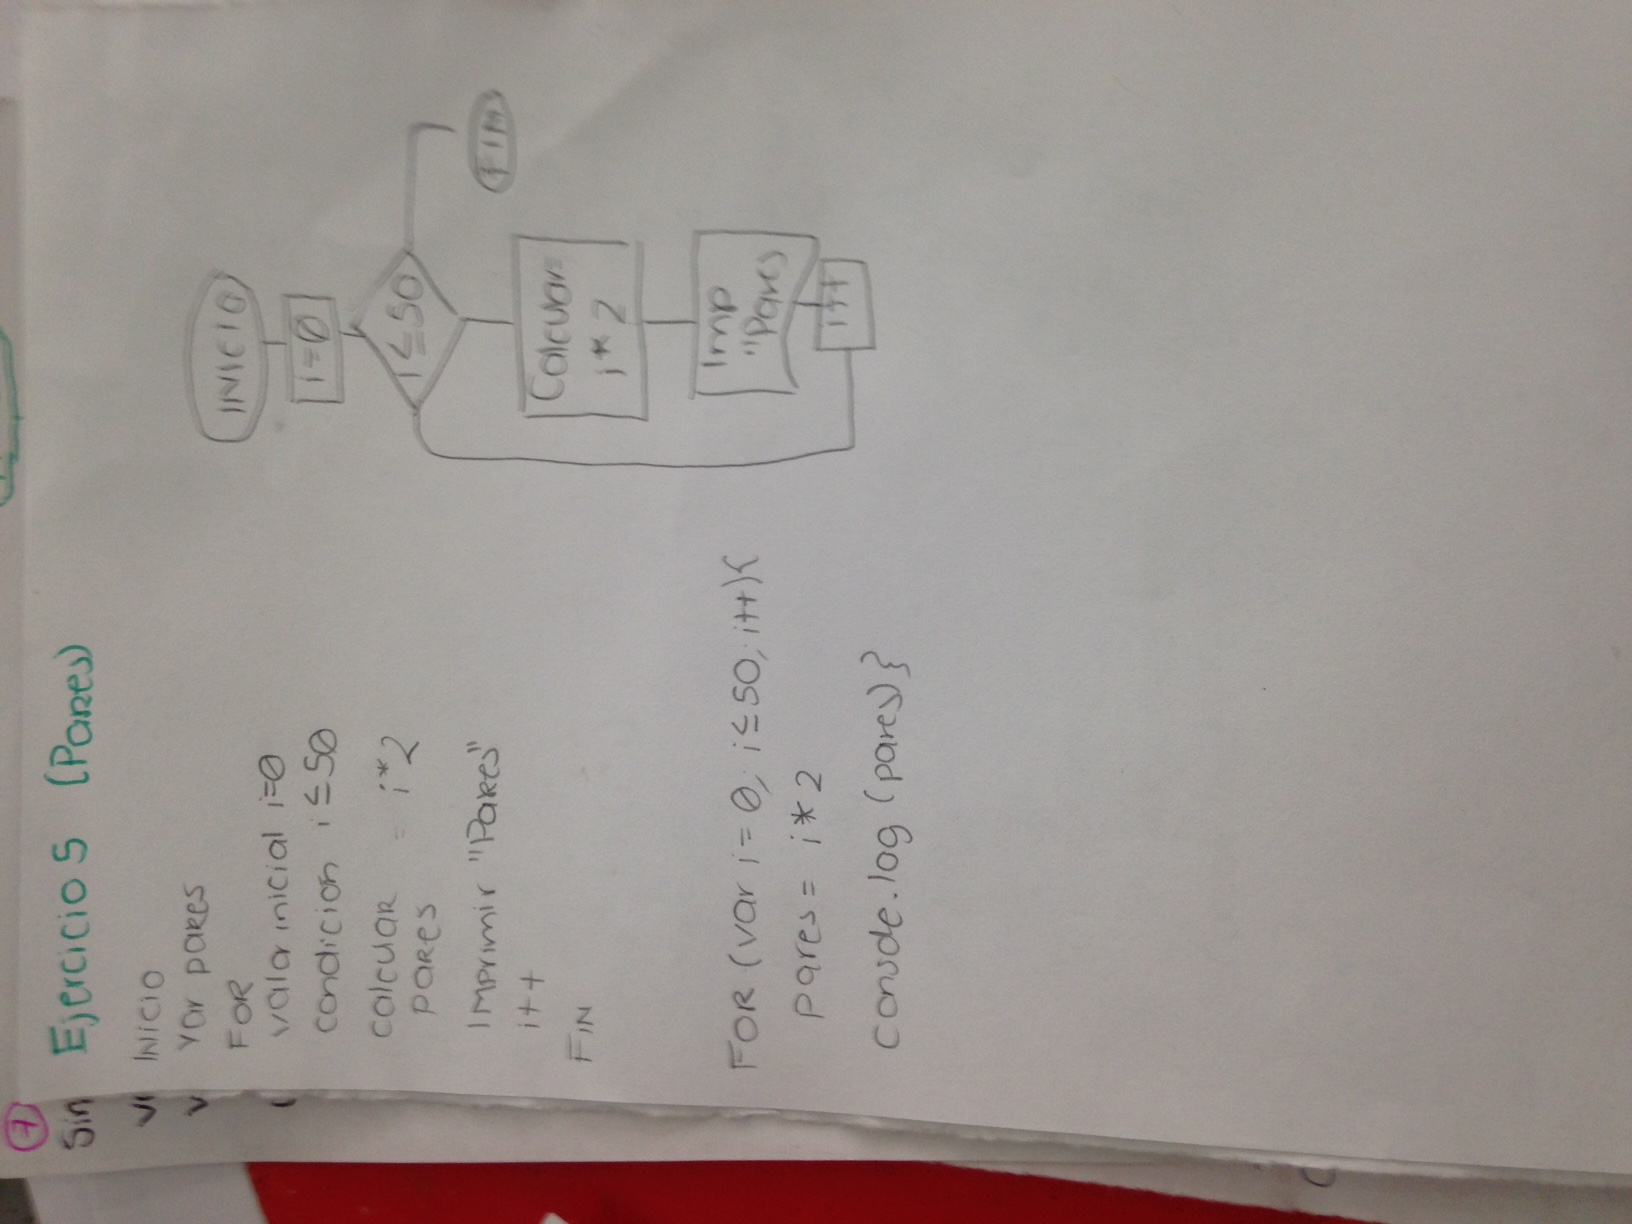 7
Sin
Ejercicio 5 (Pares)
INICIO
Var pares
FOR
valor inicial i=0
condicion i ≤ 50
calcular = i*2
pares
Imprimir "Pares"
i++
FIN
FOR (var i = 0; i ≤ 50; i++){
pares = i*2
Console.log (pares)}
INICIO
i=0
i ≤ 50
Calcular=
i*2
Imp
"Pares
i++
FIN